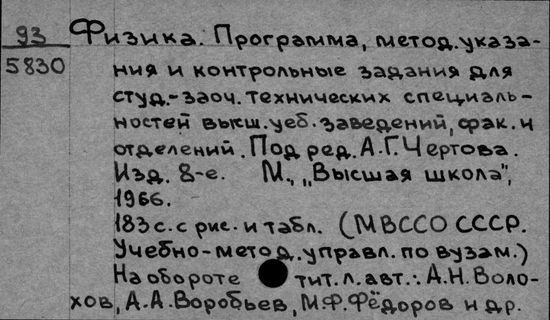 93
5830
Физика. Программа, метод. указа-
ния и контрольные задания для
студ.-заоч. технических специаль-
ностей высш. уеб. заведений, фак. и
отделений. Под ред. А.Г. Чертова.
Изд. 8-е. М., „Высшая школа",
1966.
183 с. с рис. и табл. (МВССО СССР.
Учебно-метод. управл. по вузам.)
На обороте тит. л. авт.: А.Н. Воло-
хов, А.А. Воробьев, М.Ф. Фёдоров и др.